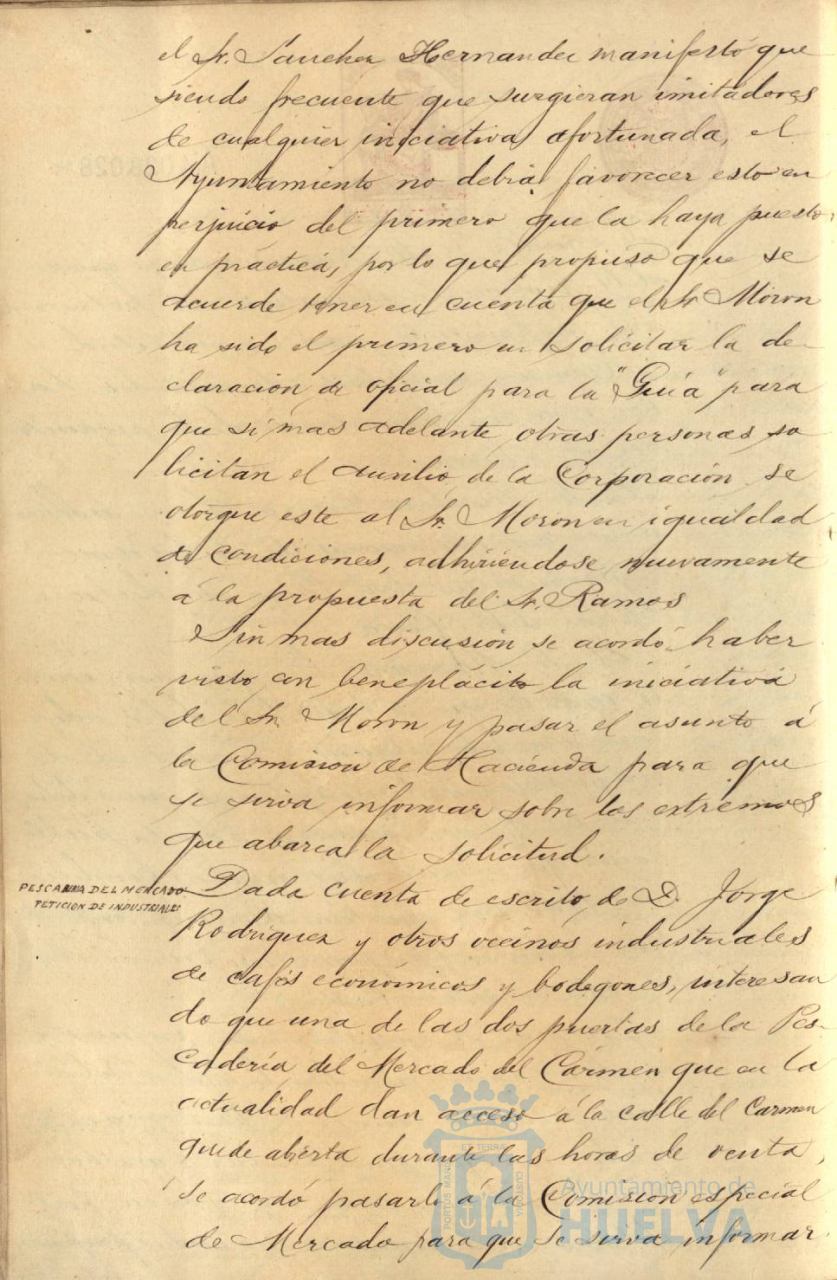 el Sr. Sanchez Hernandez manifestó que
siendo frecuente que surgieran imitadores
de cualquier iniciativa afortunada, el
Ayuntamiento no debía favorecer esto en
perjuicio del primero que la haya puesto
en práctica, por lo que propuso que se
acuerde tener en cuenta que el Sr. Moron
ha sido el primero en solicitar la de-
claracion de oficial para la "Guía" para
que si mas adelante, otras personas so
licitan el auxilio, de la Corporación, se
otorgue este al Sr. Moron en igualdad
de condiciones, adhiriéndose nuevamente
á la propuesta del Sr. Ramos
Sin mas discusión se acordó haber
visto con beneplácito la iniciativa
del Sr. Moron y pasar el asunto á
la Comision de Hacienda para que
se sirva informar sobre los extremos
que abarca la solicitud.
PESCADERIA DEL MERCADO
PETICION DE INDUSTRIALES
Dada cuenta de escrito, de D. Jorge
Rodriguez y otros vecinos industriales
de cafés económicos y bodegones, interesan
do que una de las dos puertas de la Pes-
cadería del Mercado del Cármen que en la
actualidad dan acceso á la calle del Carmen
quede abierta durante las horas de venta,
se acordó pasarlo á la Comision especial
de Mercado para que se sirva informar
Ayuntamiento de
HUELVA